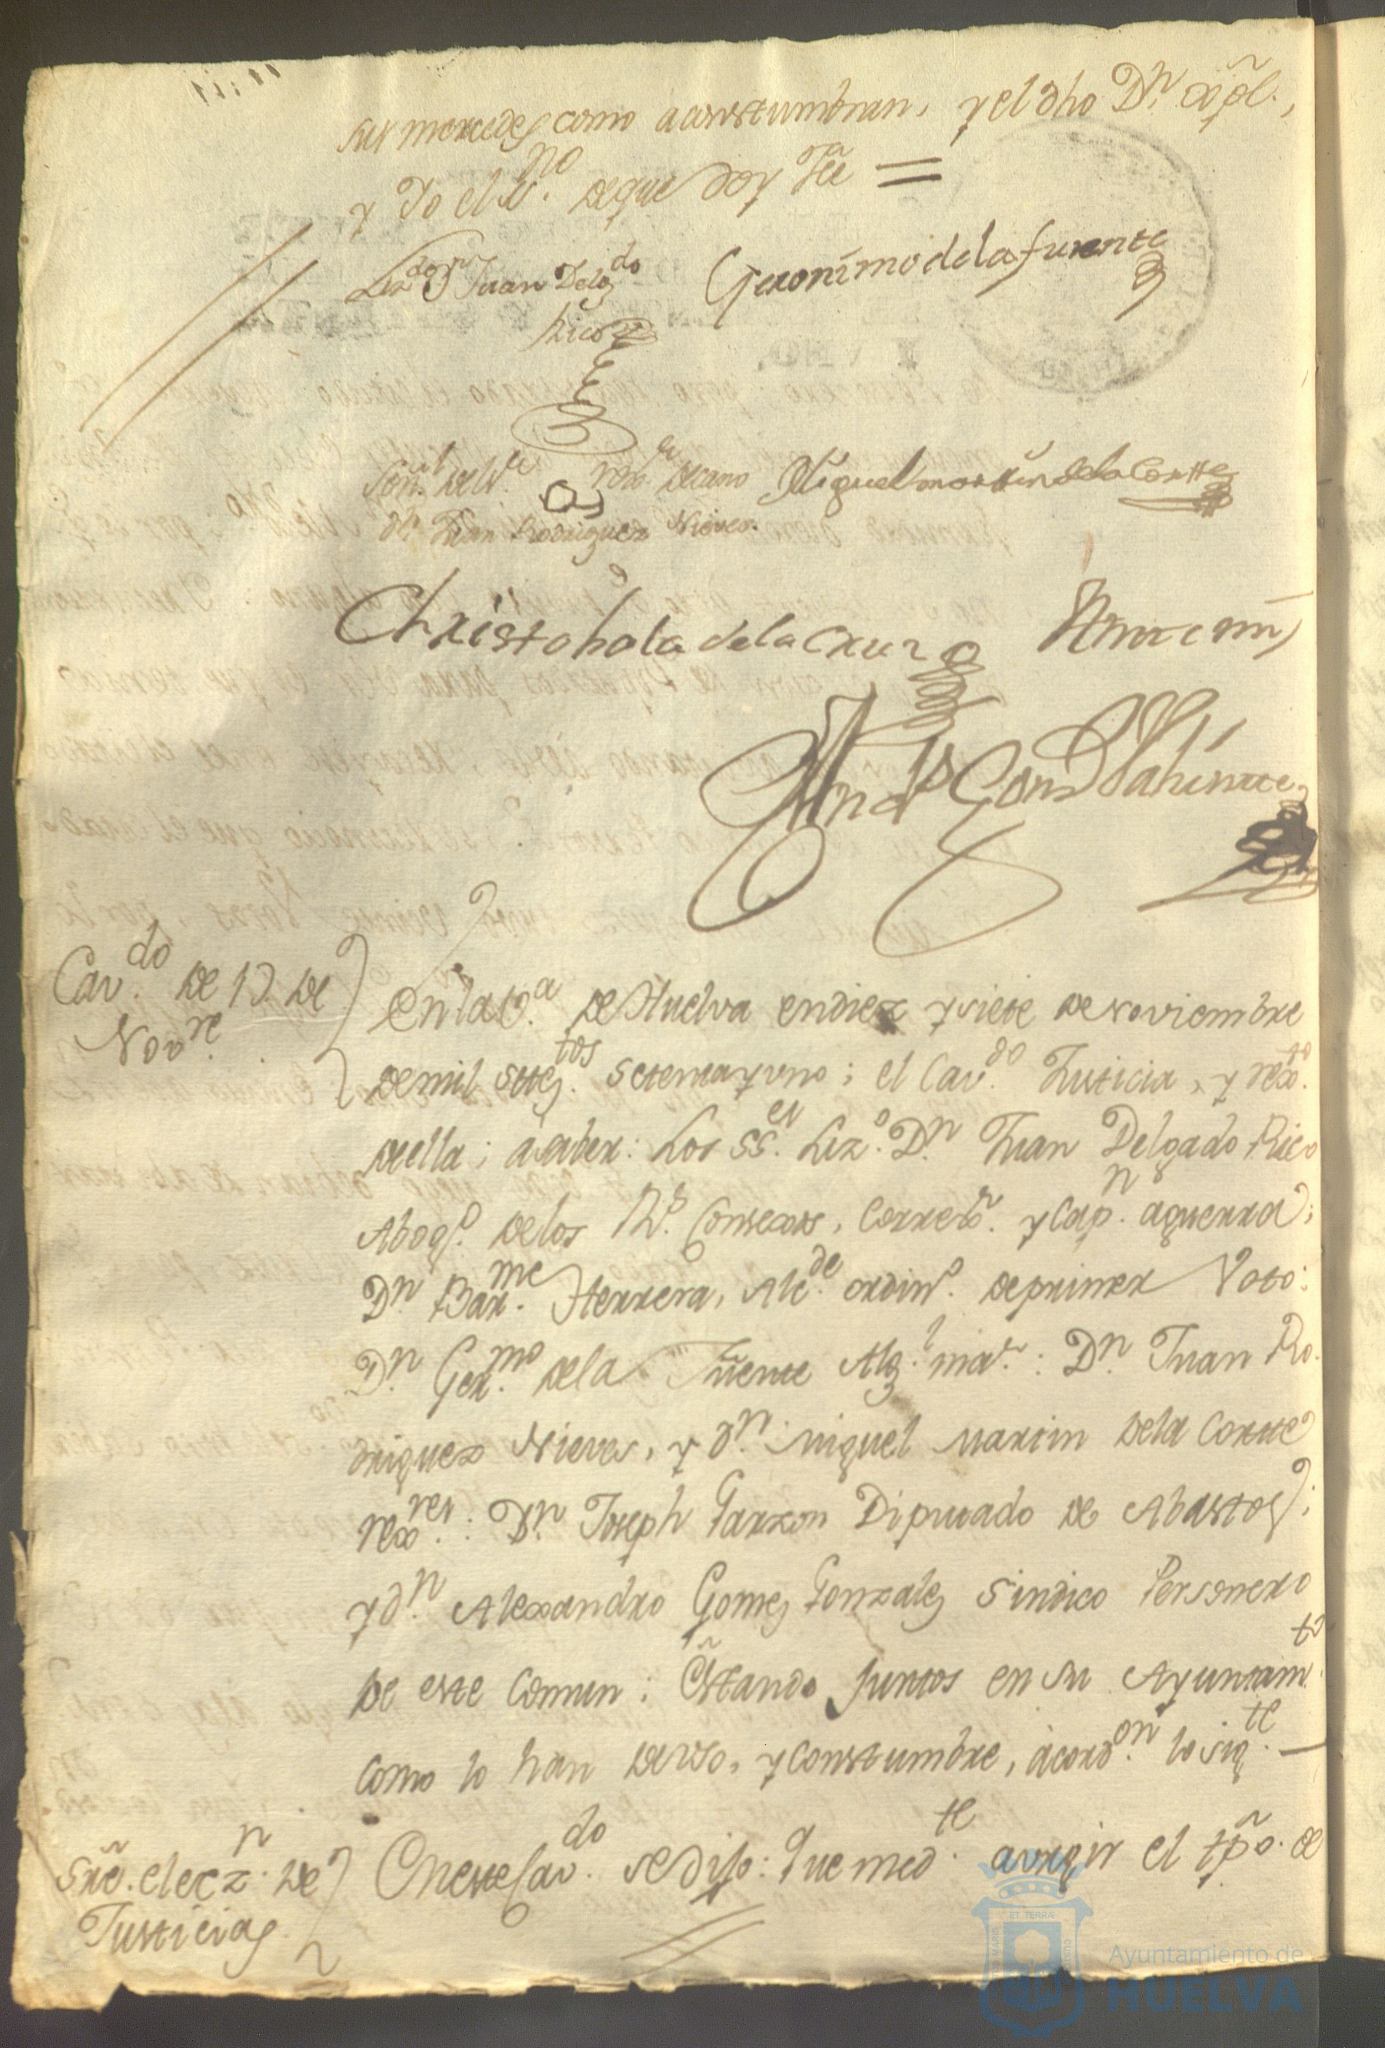 sus mercedes como acostumbran, y el dho Dn. Xpl.,
y Yo el no. de que doy fee =
Lizdo. Dn Juan Delgdo
Rico
Geronimo de la fuente
Señl. del Sr. rexr. decano
dn. Juan Rodriguez Nieves.
Miguel martin de la Cortte
Christobola de la Cruz
Ante mi
Andrs Gonz
Cavdo. de 17. de
Novre.
En la Va. de Huelva en diez y siete de Noviembre
de mil settestos. setenta y uno; el Cavdo. Justicia, y rexto.
de ella; a saber: Los SSes. Lizo. Dn. Juan Delgado Rico
Abogo. de los Rs. Consexos, Correxr. y Capn. aguerra;
Dn. Barme. Herrera, Alcde. ordino. de primer Voto:
Dn. Germo. de la Fuente Algl. mar.: Dn. Juan Ro-
driguez Nieves, y dn. Miguel Martin de la Cortte
rexres.: Dn. Joseph Garzon Diputado de Abastos;
y dn. Alexandro Gomez Gonzalez Sindico Personero
de este Comun: Estando juntos en su Ayuntamto.
como lo han de uso, y constumbre, acordon. lo sigte. —
Sre. eleczn. de
Justicias
En este Cavdo. se dijo: Que medte. a urgir el tpo. de
ET TERRÆ
Ayuntamiento de
HUELVA